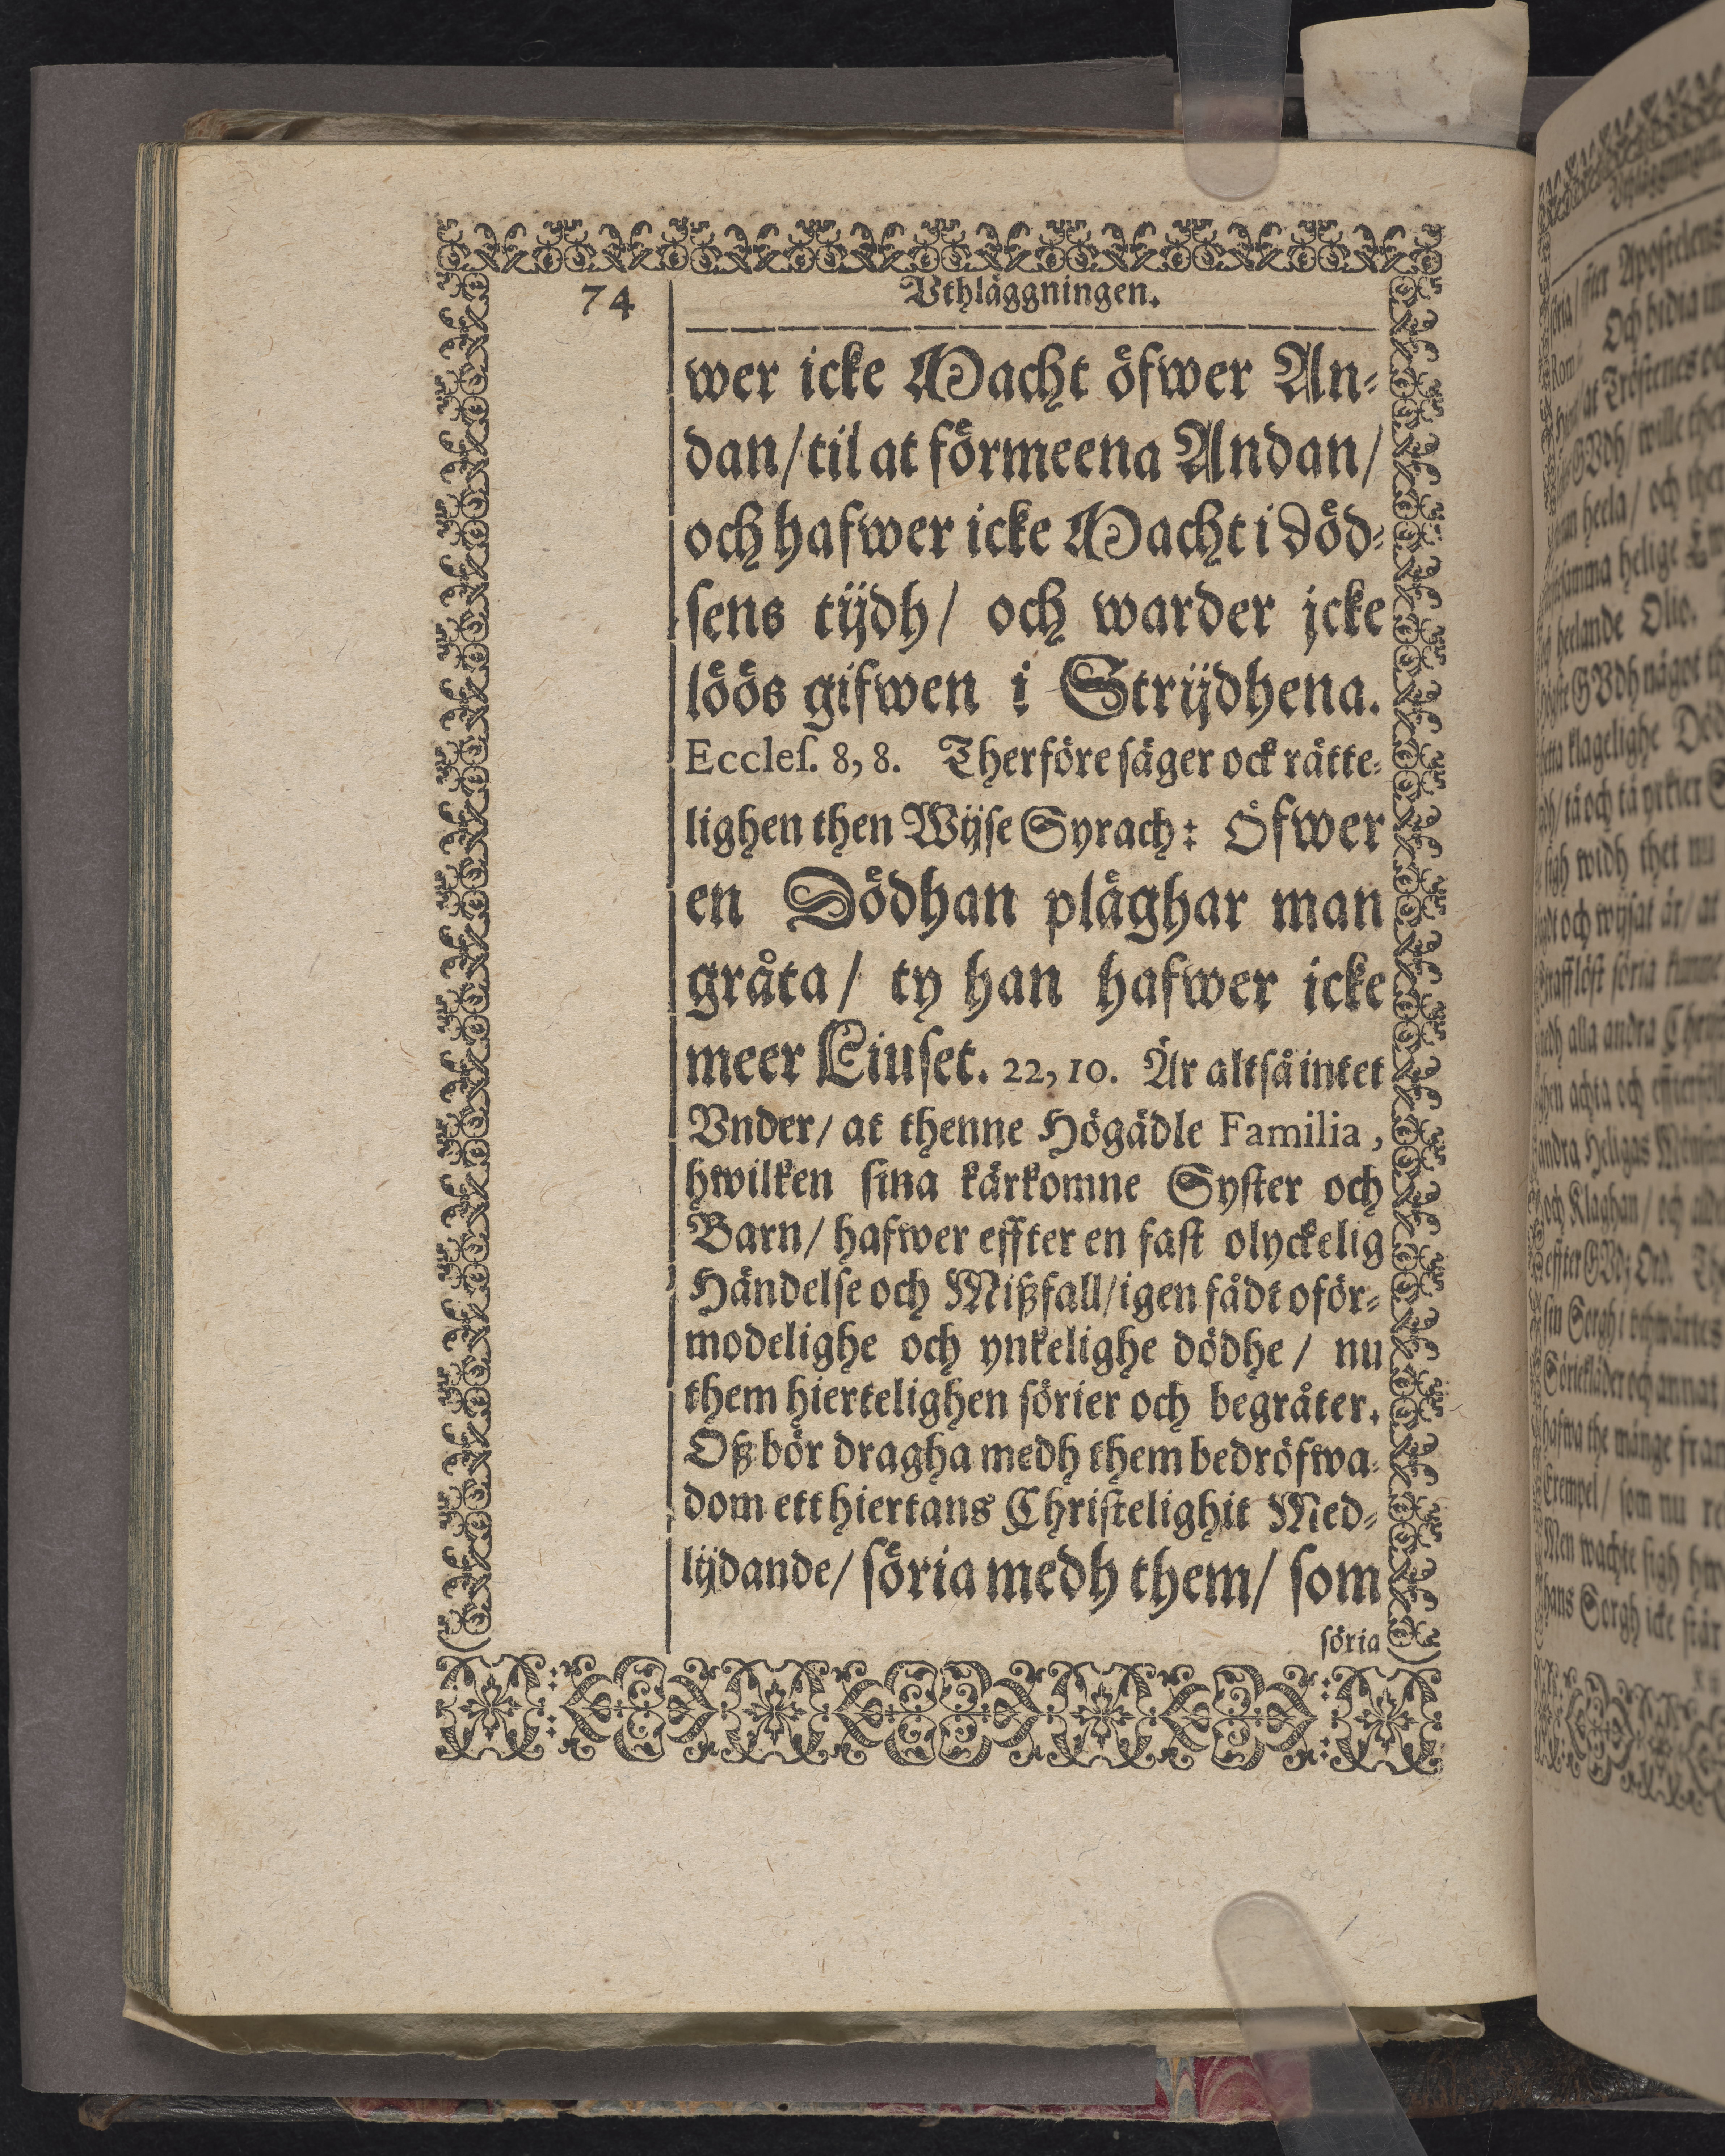 74
Vthläggningen.
wer icke Macht öfwer An-
dan/ til at förmeena Andan/
och hafwer icke Macht i död-
sens tijdh/ och warder jcke
löös gifwen i Strijdhena.
Eccleſ. 8, 8. Therföre säger ock rätte-
lighen then Wijse Syrach: Öfwer
en Dödhan pläghar man
gråta/ ty han hafwer icke
meer Liuset. 22, 10. Är altså intet
Vnder/ at thenne Högädle Familia,
hwilken sina kärkomne Syster och
Barn/ hafwer effter en fast olyckelig
Händelse och Mißfall/ igen fådt oför-
modelighe och ynkelighe dödhe/ nu
them hiertelighen sörier och begråter.
Oß bör dragha medh them bedröfwa-
dom ett hiertans Christelighit Med-
lijdande/ söria medh them/ som
söria